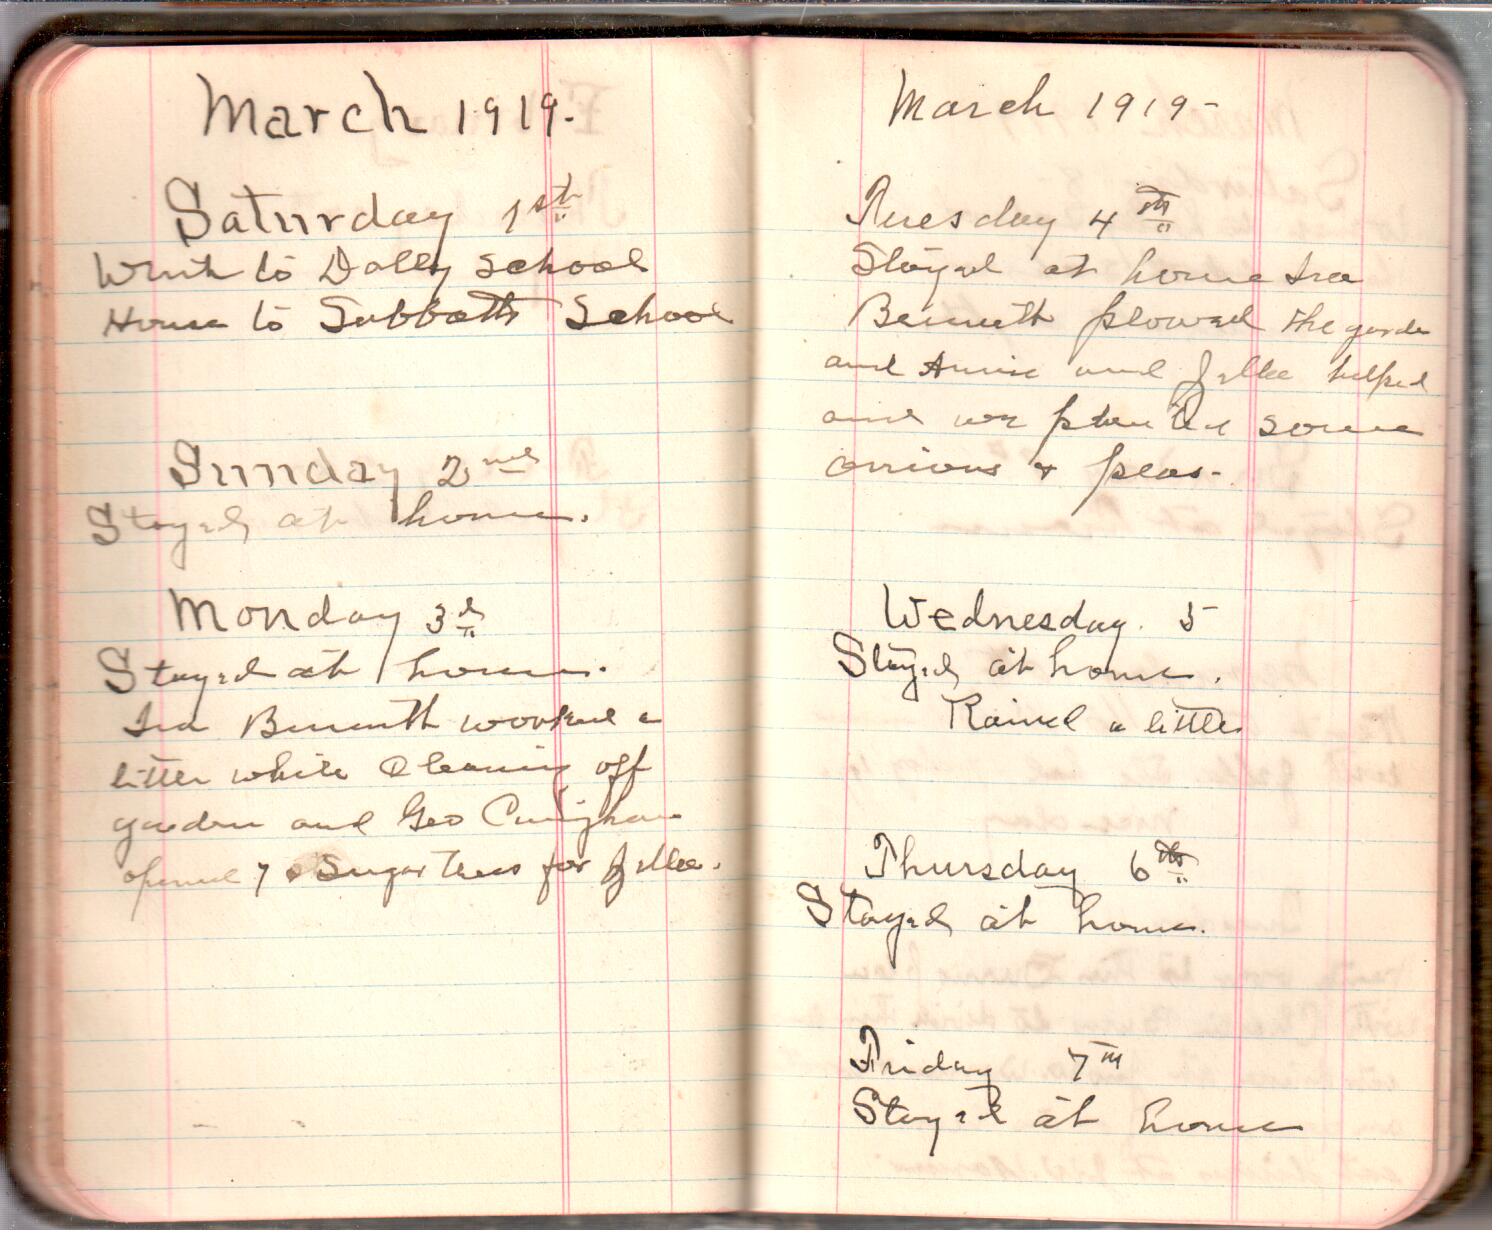 March 1919.
Saturday 1st
Went to Dolly School
House to Sabbath School
Sunday 2nd
Stayed at home.
Monday 3d
Stayed at home.
Ira Bennett worked a
litter while Cleaning off
garden and Geo
opened 7 Sugar trees for
March 1919-
Tuesday 4th
Stayed at home Ira
Bennett plowed the garden
and Annie and helped
and we planted some
onions & peas-
Wednesday. 5
Stayed at home.
Rained a little
Thursday 6th
Stayed at home.
Friday 7th
Stayed at home